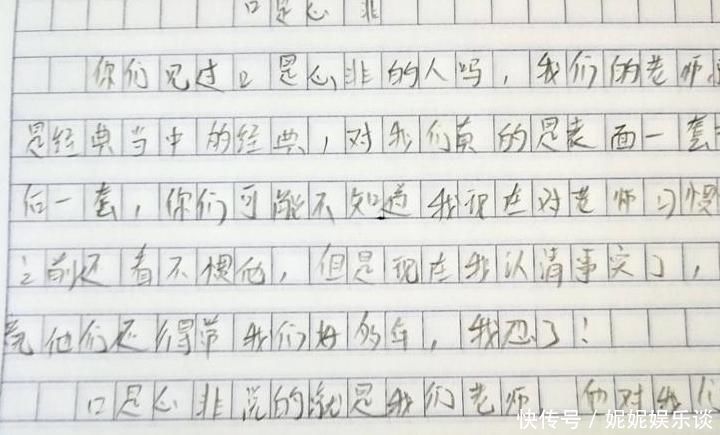 口是心非
你们见过口是心非的人吗，我们的老师
是经典当中的经典，对我们真的是表面一套
后一套，你们可能不知道我现在对老师习惯
之前还看不惯他，但是现在我认清事实了，
竟他们还得带我们好多年，我忍了！
口是心非说的就是我们老师 他对我们
快传号／妮妮娱乐谈